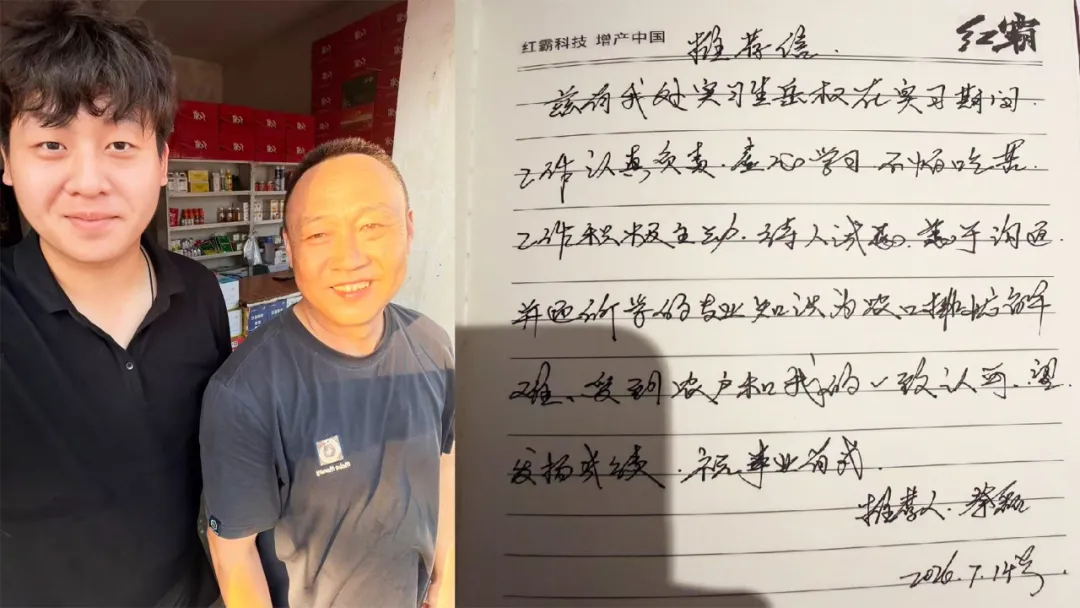 红霸科技 增产中国
红霸
推荐信
兹有我处实习生岳权在实习期间
工作认真负责.虚心学习.不怕吃苦.
工作积极主动.待人诚恳.善于沟通
并通所学的专业知识为农户排忧解
难、受到农户和我的一致认可.望
发扬成绩.祝事业有成.
推荐人.蔡
2026.7.14号